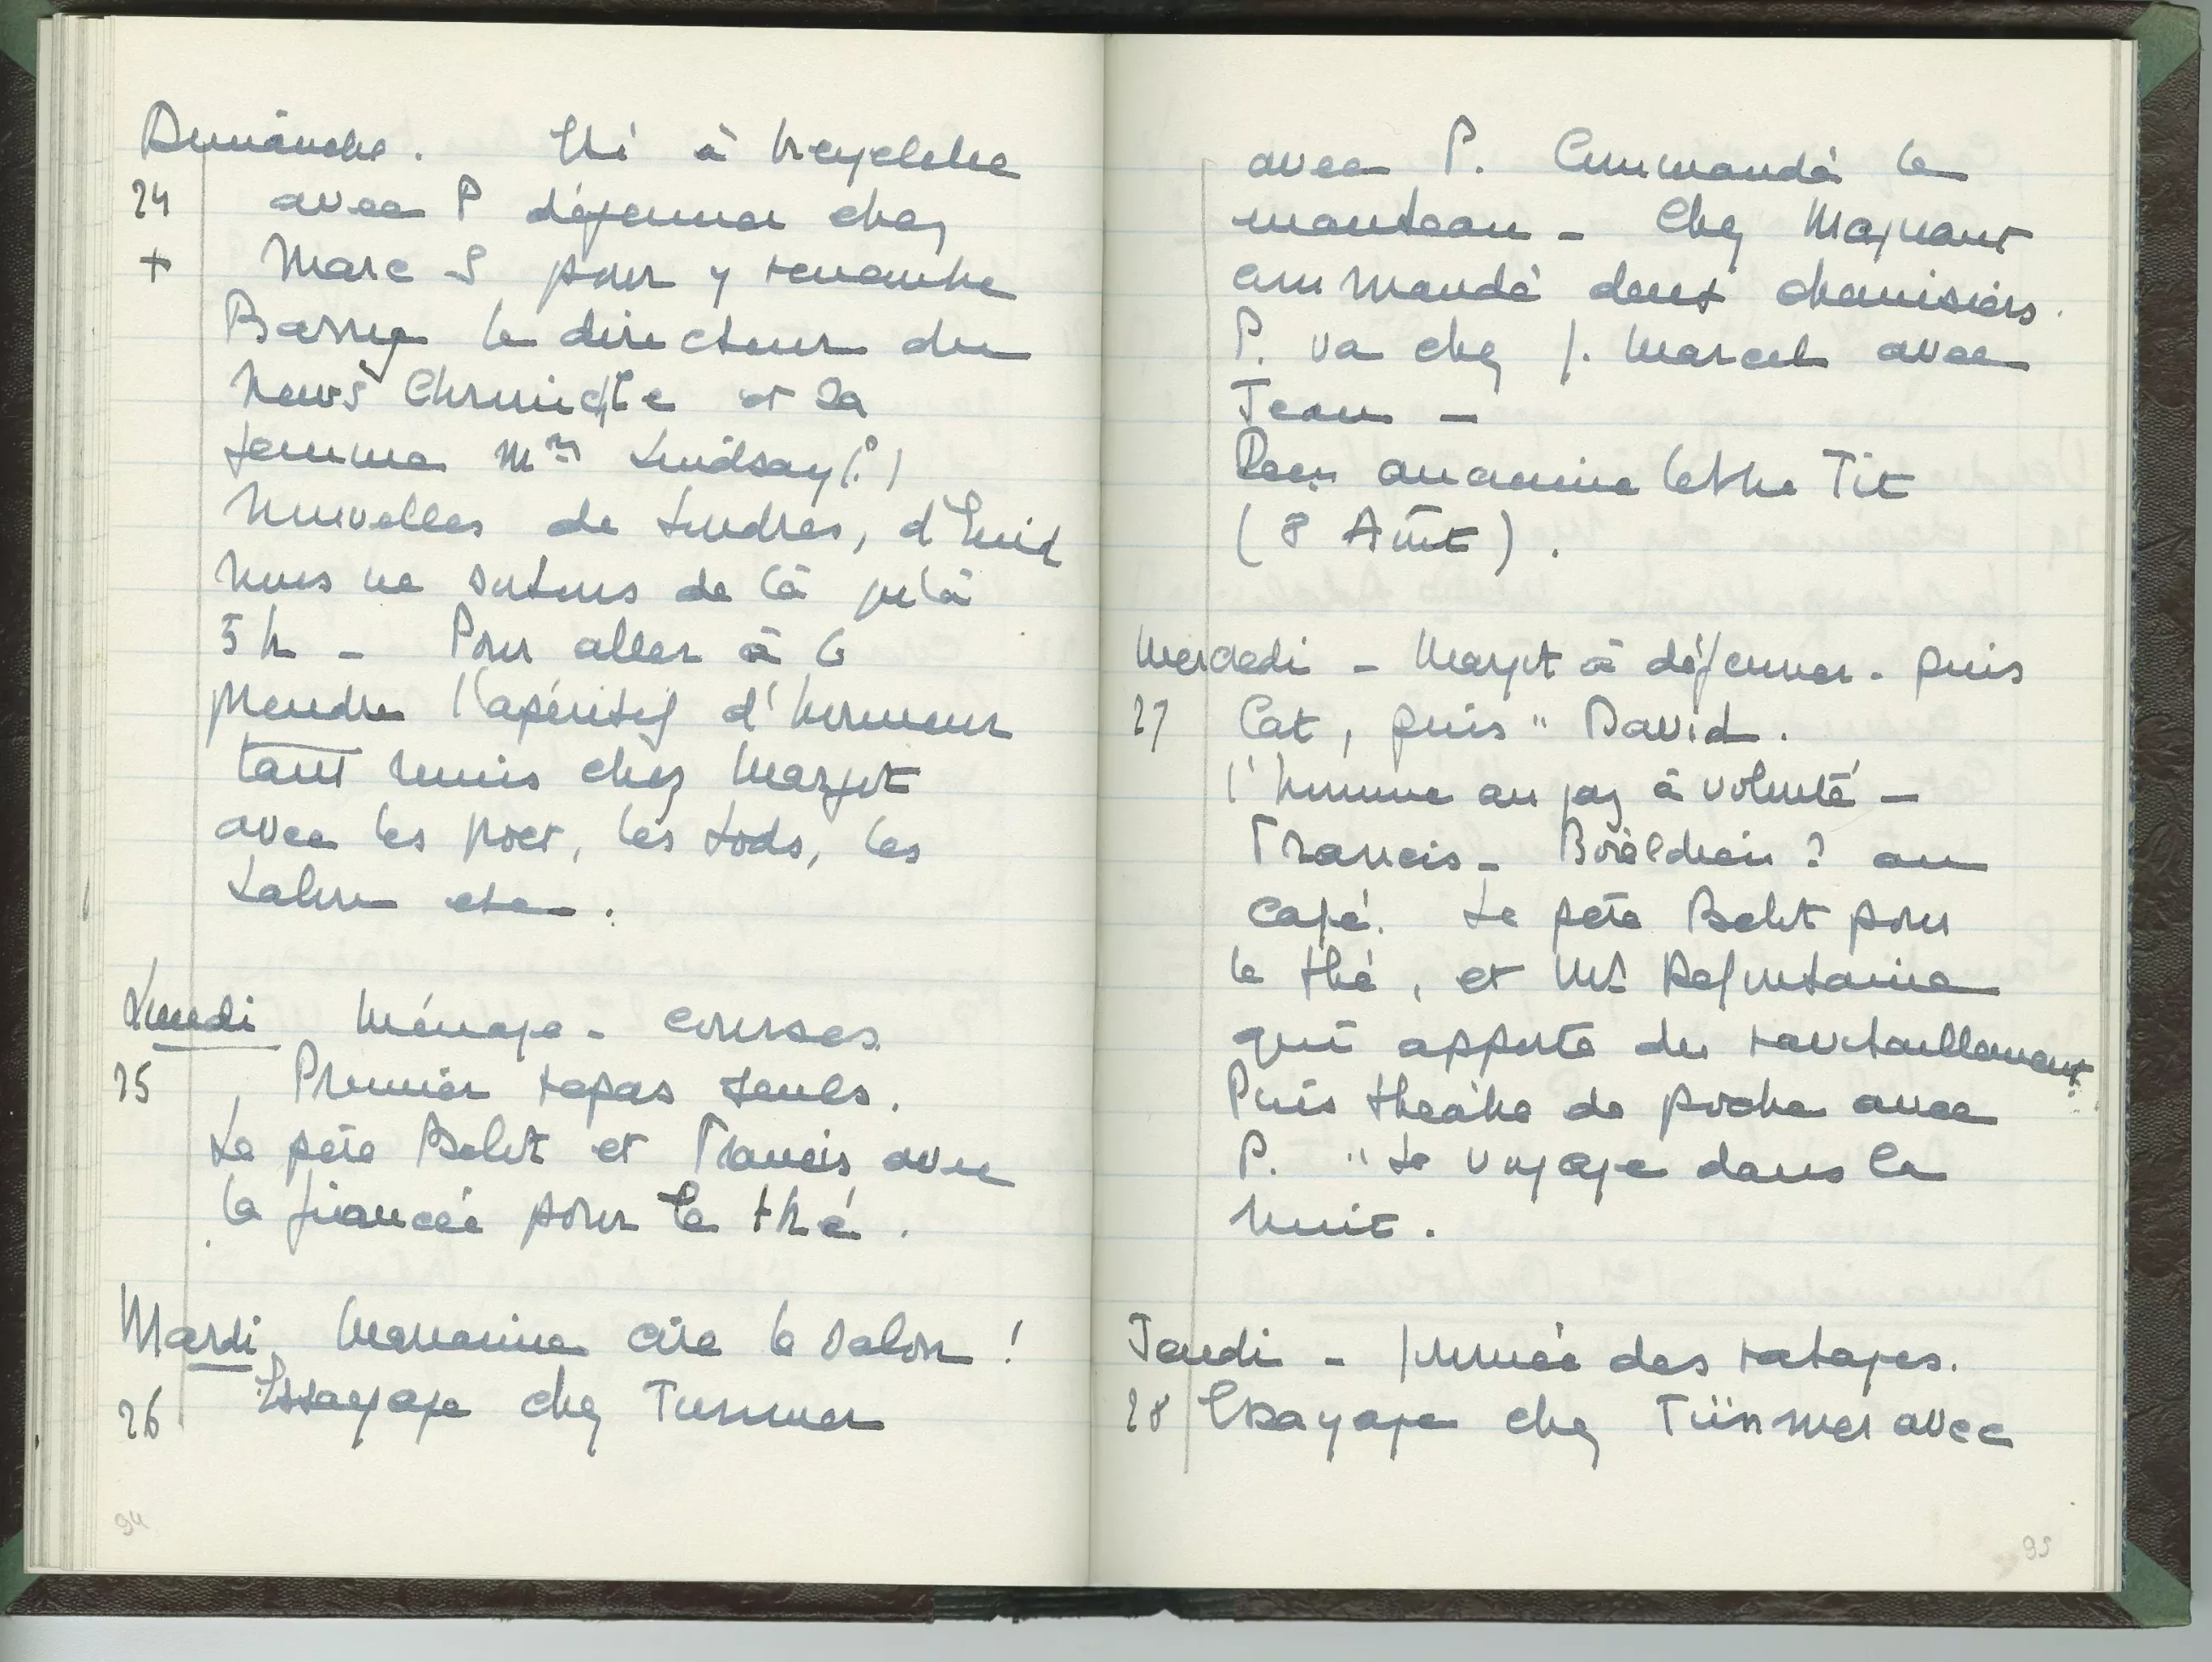 Dimanche. Eté à bicyclette
24 avec P déjeuner chez
+ Marc S pour y rencontre
Barry le directeur du
News Chronicle et sa
femme Mrs Lindsay (?)
Nouvelles de Londres, d'Enid
nous ne sortons de là qu'à
5 h - Pour aller à 6
prendre l'apéritif d'honneur
tous réunis chez Margot
avec les Poet, les Lods, les
etc.
Lundi Ménage - courses.
25 Premier repas seuls.
Le père Belot et Francis avec
la fiancée pour le thé.
Mardi Mananine cire le salon !
26 Essayage chez Tunmer
94
avec P. Commandé le
manteau - Chez Maquaux
commandé deux chemisiers.
P. va chez J. Marcel avec
Jean -
Reçu ancienne lettre Tit
(8 Août).
Mercredi - Margot à déjeuner - puis
27 Cat, puis " David.
l'homme au gaz à volonté -
Francis - ? au
café. Le père Belot pour
le thé, et Mr Defontaine
qui apporte du ravitaillement
Puis théâtre de poche avec
P. " Le voyage dans la
nuit.
Jeudi - journée des ratages.
28 Essayage chez Tünmer avec
95